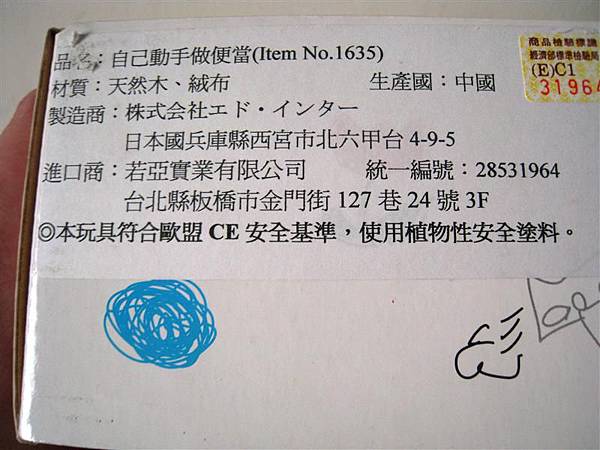 品名：自己動手做便當(Item No.1635)
材質：天然木、絨布 生產國：中國
製造商：株式会社エド・インター
日本國兵庫縣西宮市北六甲台 4-9-5
進口商：若亞實業有限公司 統一編號：28531964
台北縣板橋市金門街 127 巷 24 號 3F
◎本玩具符合歐盟 CE 安全基準，使用植物性安全塗料。
商品檢驗標識
經濟部標準檢驗局
(E)C1
31964